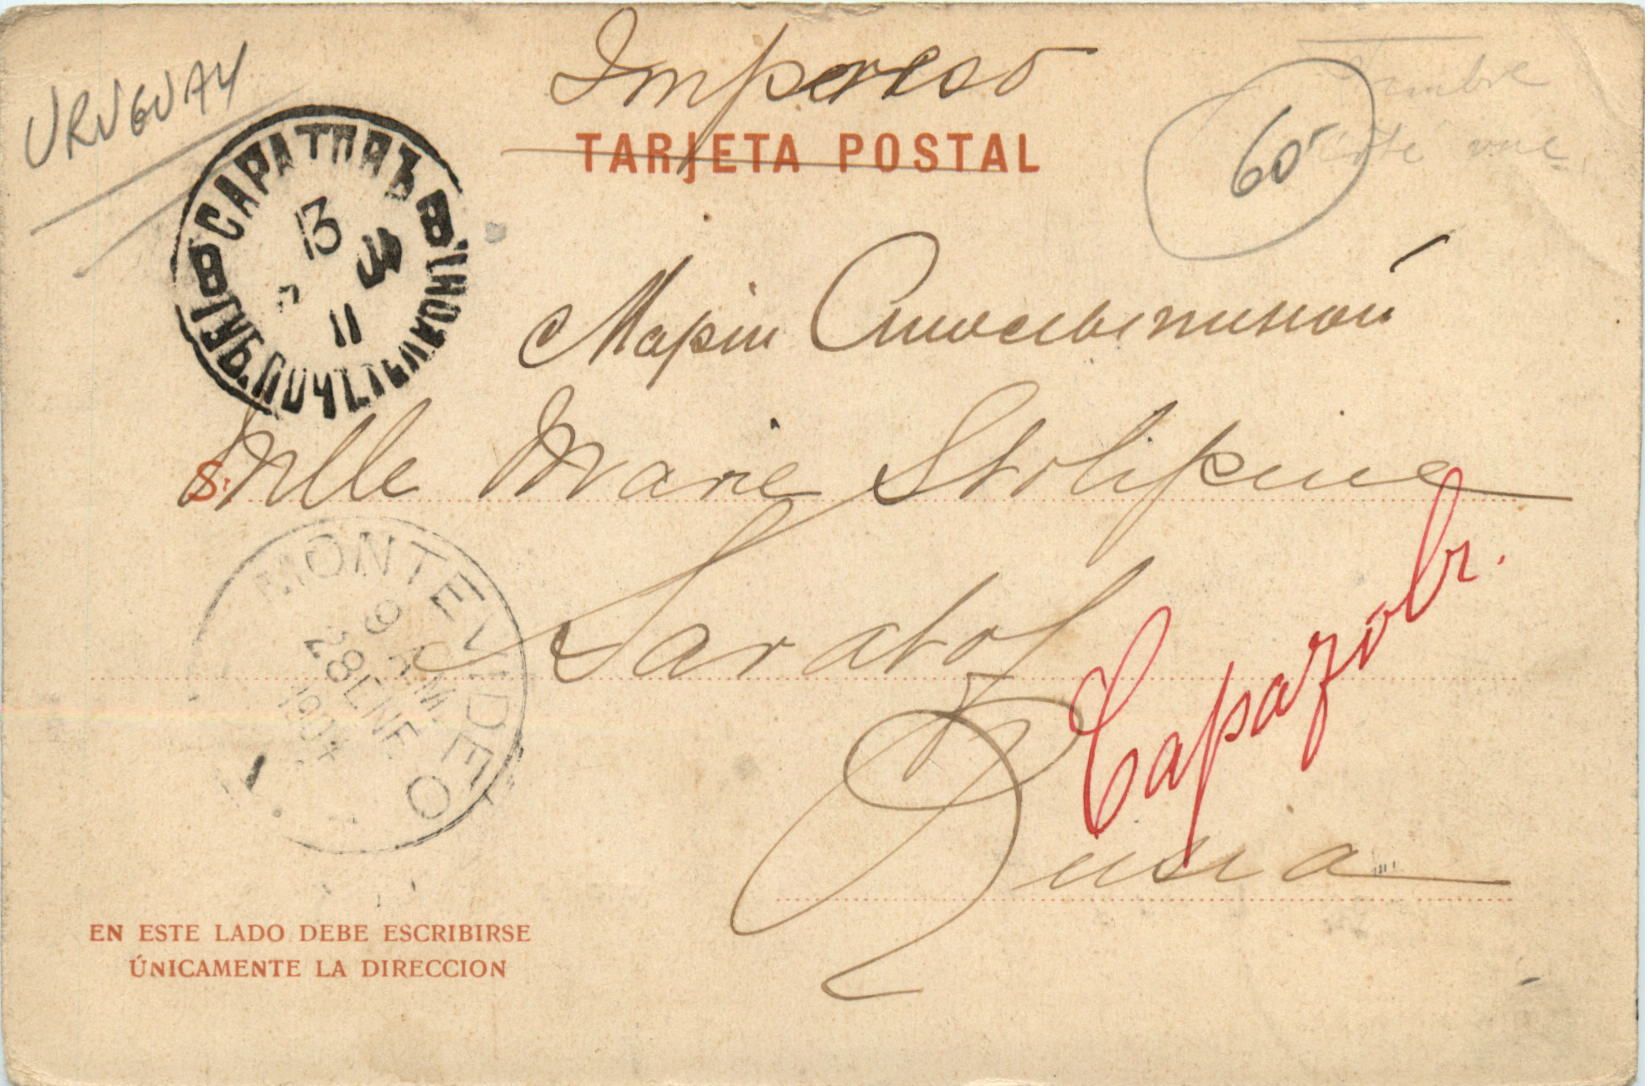 URUGUAY
Impreso
TARJETA POSTAL
Timbre
côté vue
60
САРАТОВЪ
13
11
ГУБ. ПОЧТ.
Маріи Столыпиной
S.r
Mlle Marie Stolipine
Saratof
Саратовъ.
Rusia
MONTEVIDEO
9 A.M.
28 ENE
1904
EN ESTE LADO DEBE ESCRIBIRSE
ÚNICAMENTE LA DIRECCION